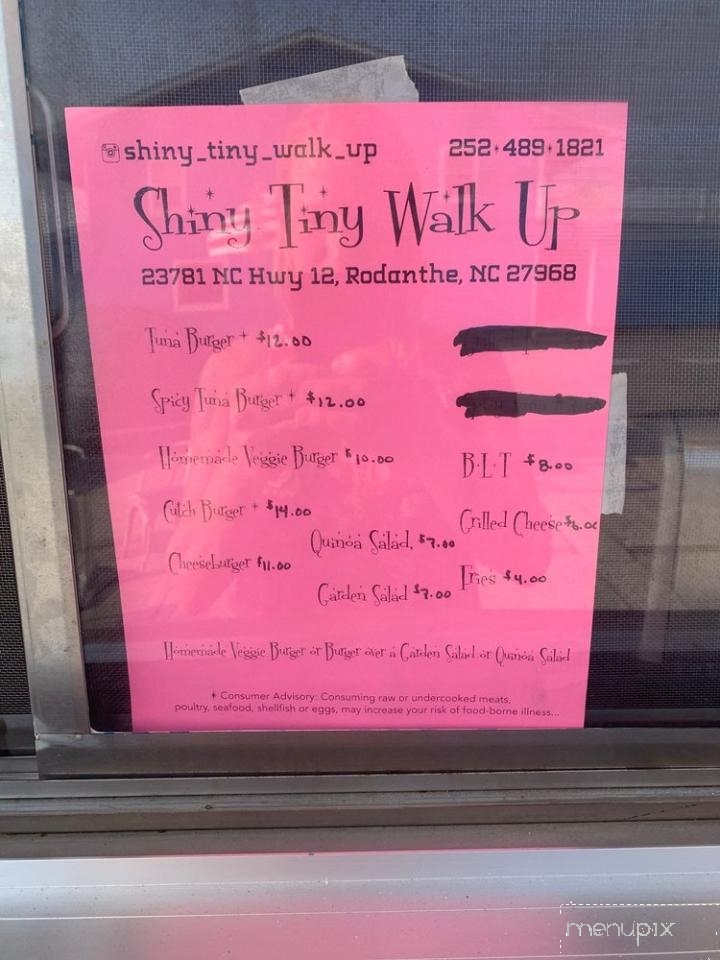 shiny_tiny_walk_up 252✦489✦1821
Shiny Tiny Walk Up
23781 NC Hwy 12, Rodanthe, NC 27968
Tuna Burger ✦ $12.00
Spicy Tuna Burger ✦ $12.00
Homemade Veggie Burger $10.00
B·L·T $8.00
Cutch Burger ✦ $14.00
Grilled Cheese $6.00
Quinoa Salad. $7.00
Cheeseburger $11.00
Fries $4.00
Garden Salad $7.00
Homemade Veggie Burger or Burger over a Garden Salad or Quinoa Salad
✦ Consumer Advisory: Consuming raw or undercooked meats,
poultry, seafood, shellfish or eggs, may increase your risk of food-borne illness...
menupix